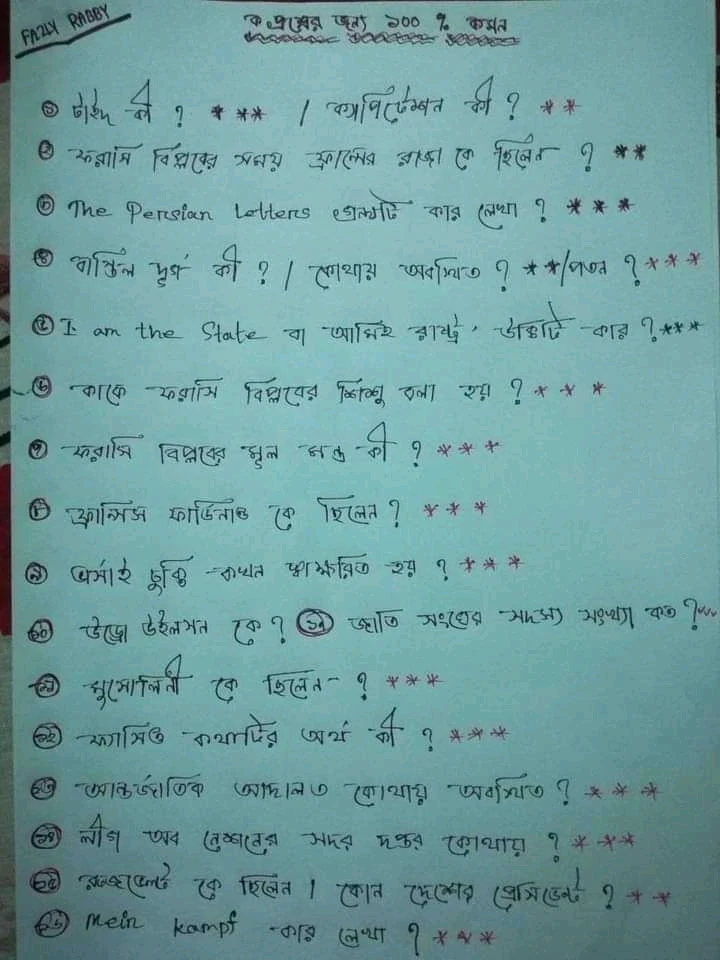 FAZLY RABBY
ক প্রশ্নের জন্য ১০০ % কমন
① টাইদ কী ? * ** / ক্যাপিটেশন কী ? * *
② ফরাসি বিপ্লবের সময় ফ্রান্সের রাজা কে ছিলেন ? **
③ The Persian Letters গ্রন্থটি কার লেখা ? * * *
④ বাস্তিল দুর্গ কী ? / কোথায় অবস্থিত ? * */পতন ? * * *
⑤ I am the State বা আমিই রাষ্ট্র, উক্তিটি কার ? ***
⑥ কাকে ফরাসি বিপ্লবের শিশু বলা হয় ? * * *
⑦ ফরাসি বিপ্লবের মূল মন্ত্র কী ? * * *
⑧ ফ্রান্সিস ফার্ডিনান্ড কে ছিলেন ? * * *
⑨ ভার্সাই চুক্তি কখন স্বাক্ষরিত হয় ? * * *
⑩ উড্রো উইলসন কে ? জাতি সংঘের সদস্য সংখ্যা কত ?
⑪ মুসোলিনী কে ছিলেন ? ***
⑫ ফ্যাসিও কথাটির অর্থ কী ? ***
⑬ আন্তর্জাতিক আদালত কোথায় অবস্থিত ? * * *
⑭ লীগ অব নেশনের সদর দপ্তর কোথায় ? * **
⑮ রুজভেল্ট কে ছিলেন / কোন দেশের প্রেসিডেন্ট ? * *
⑯ Mein kampf কার লেখা ? * * *